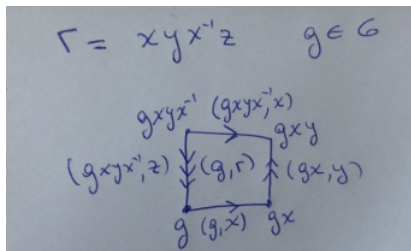 r = xyx⁻¹z g ∈ G
gxyx⁻¹ (gxyx⁻¹, x) gxy
(gxyx⁻¹, z) (g, r) (gx, y)
g (g, x) gx